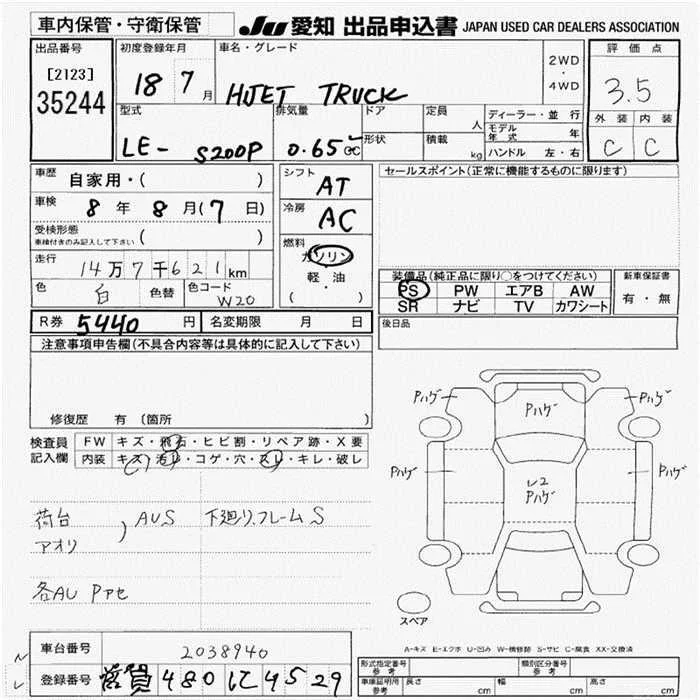 車内保管・守衛保管
JU 愛知 出品申込書 JAPAN USED CAR DEALERS ASSOCIATION
出品番号
[2123]
35244
初度登録年月
18 7 月
車名・グレード
HIJET TRUCK
2WD
・
4WD
評価点
3.5
外装 内装
C C
型式
LE- S200P
排気量
0.65 cc
ドア
形状
定員
人
積載
kg
ディーラー・並行
モデル年式 年
ハンドル 左・右
車歴 自家用・( )
車検 8 年 8 月(7 日)
受検形態
車検付きのみ記入して下さい ( )
走行 14万7千621km
色 白 色替 色コード W20
シフト AT
冷房 AC
燃料
ガソリン
軽・油
( )
セールスポイント(正常に機能するものに限ります)
装備品(純正品に限り○をつけてください)
PS PW エアB AW
SR ナビ TV カワシート
新車保証書
有・無
後日品
R券 5440 円 名変期限 月 日
注意事項申告欄(不具合内容等は具体的に記入して下さい)
修復歴 有 〔箇所 〕
検査員記入欄
FW キズ・飛石・ヒビ割・リペア跡・X要
内装 キズ・汚レ・コゲ・穴・スレ・キレ・破レ
荷台
アオリ
) AUS 下廻り、フレームS
各AU Pアセ
Pハゲ Pハゲ Pハゲ
Pハゲ Pハゲ
レ2
Pハゲ
スペア
A-キズ E-エクボ U-凹み W-補修跡 S-サビ C-腐食 XX-交換済
車台番号 2038940
登録番号 滋賀 480 に 4529
形式指定番号
参考
類別区分番号
参考
車庫証明用
参考
長さ cm 幅 cm 高さ cm